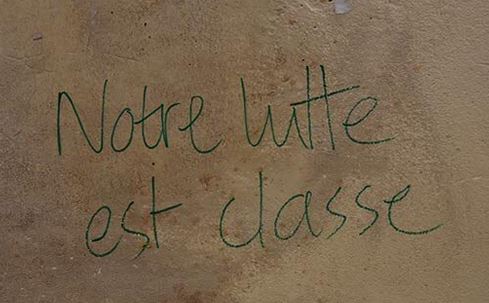 Notre lutte
est classe